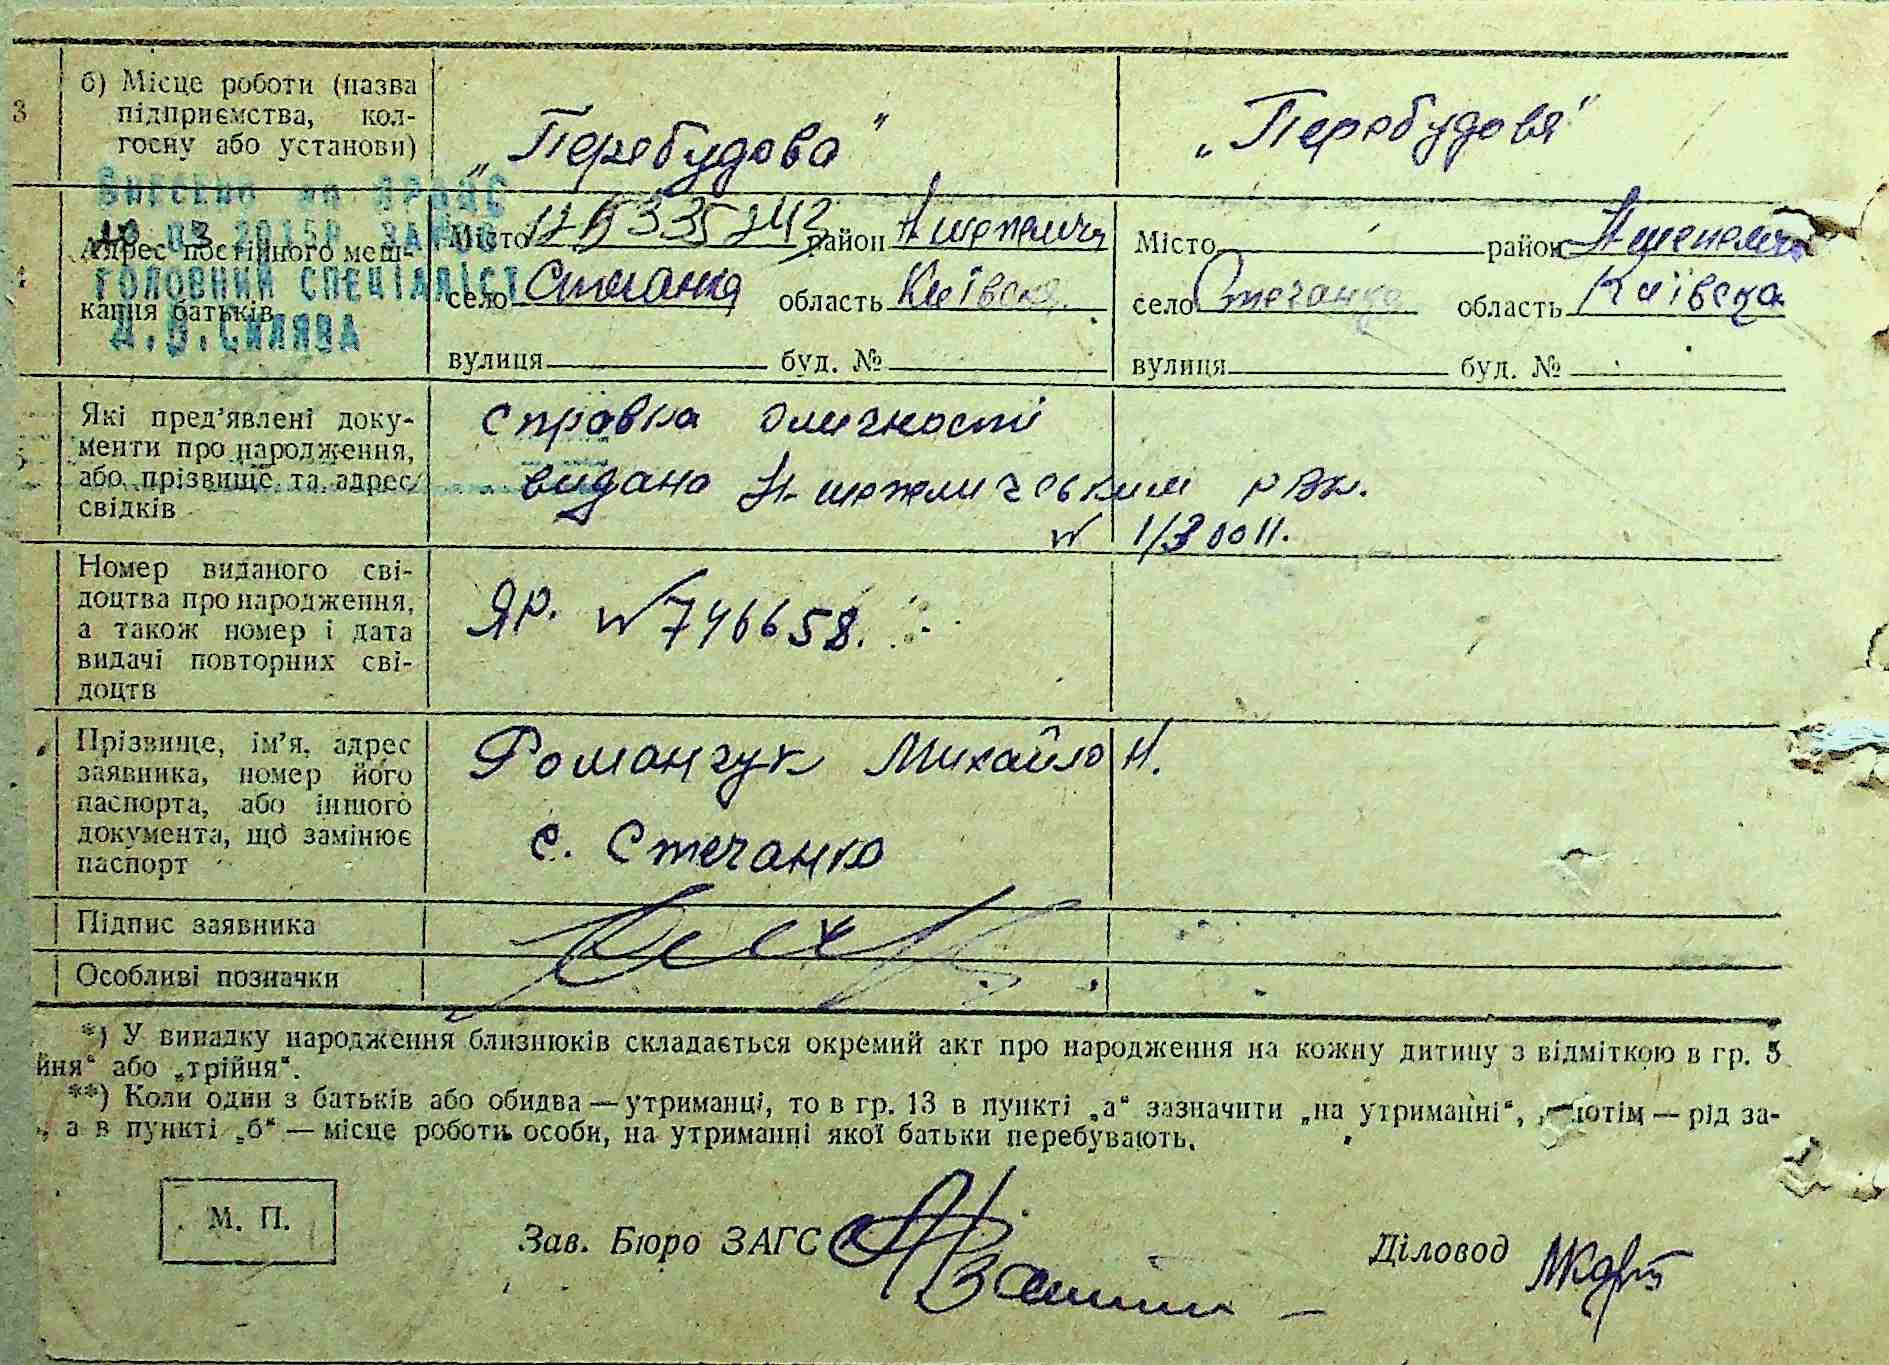 3 б) Місце роботи (назва
підприємства, кол-
госпу або установи)
„Перебудова" „Перебудовя"
Внесено до ДРАЦС
03 2015р.
ГОЛОВНИЙ СПЕЦІАЛІСТ
4 Адрес постійного меш-
кання батьків
Місто район Н шепелич
село Стечанка область Київска
вулиця буд. №
Місто район Н шепелич
село Стечанка область Київска
вулиця буд. №
Які пред'явлені доку-
менти про народження,
або прізвище та адрес
свідків
справка оличності
видано Н-шепеличським рвк.
№ 1/30011.
Номер виданого сві-
доцтва про народження,
а також номер і дата
видачі повторних сві-
доцтв
ЯР. №746658.
Прізвище, ім'я, адрес
заявника, номер його
паспорта, або іншого
документа, що замінює
паспорт
Романчук Михайло Н.
с. Стечанка
Підпис заявника
Особливі позначки
*) У випадку народження близнюків складається окремий акт про народження на кожну дитину з відміткою в гр. 5
йня" або „трійня".
**) Коли один з батьків або обидва — утриманці, то в гр. 13 в пункті „а" зазначити „на утриманні", потім — рід за-
а в пункті „б" — місце роботи особи, на утриманні якої батьки перебувають.
М. П.
Зав. Бюро ЗАГС
Діловод